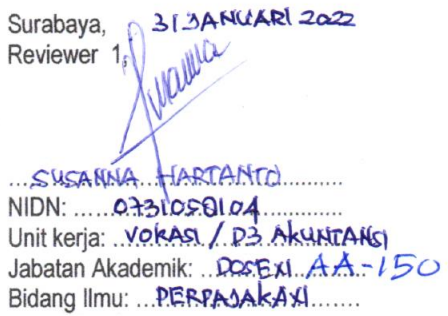 Surabaya, 31 JANUARI 2022
Reviewer 1,
...SUSANNA HARTANTO...
NIDN: ......0731050104......
Unit kerja: ..VOKASI / D3 AKUNTANSI
Jabatan Akademik: ..DOSEN..AA-150
Bidang Ilmu: ...PERPAJAKAN.......